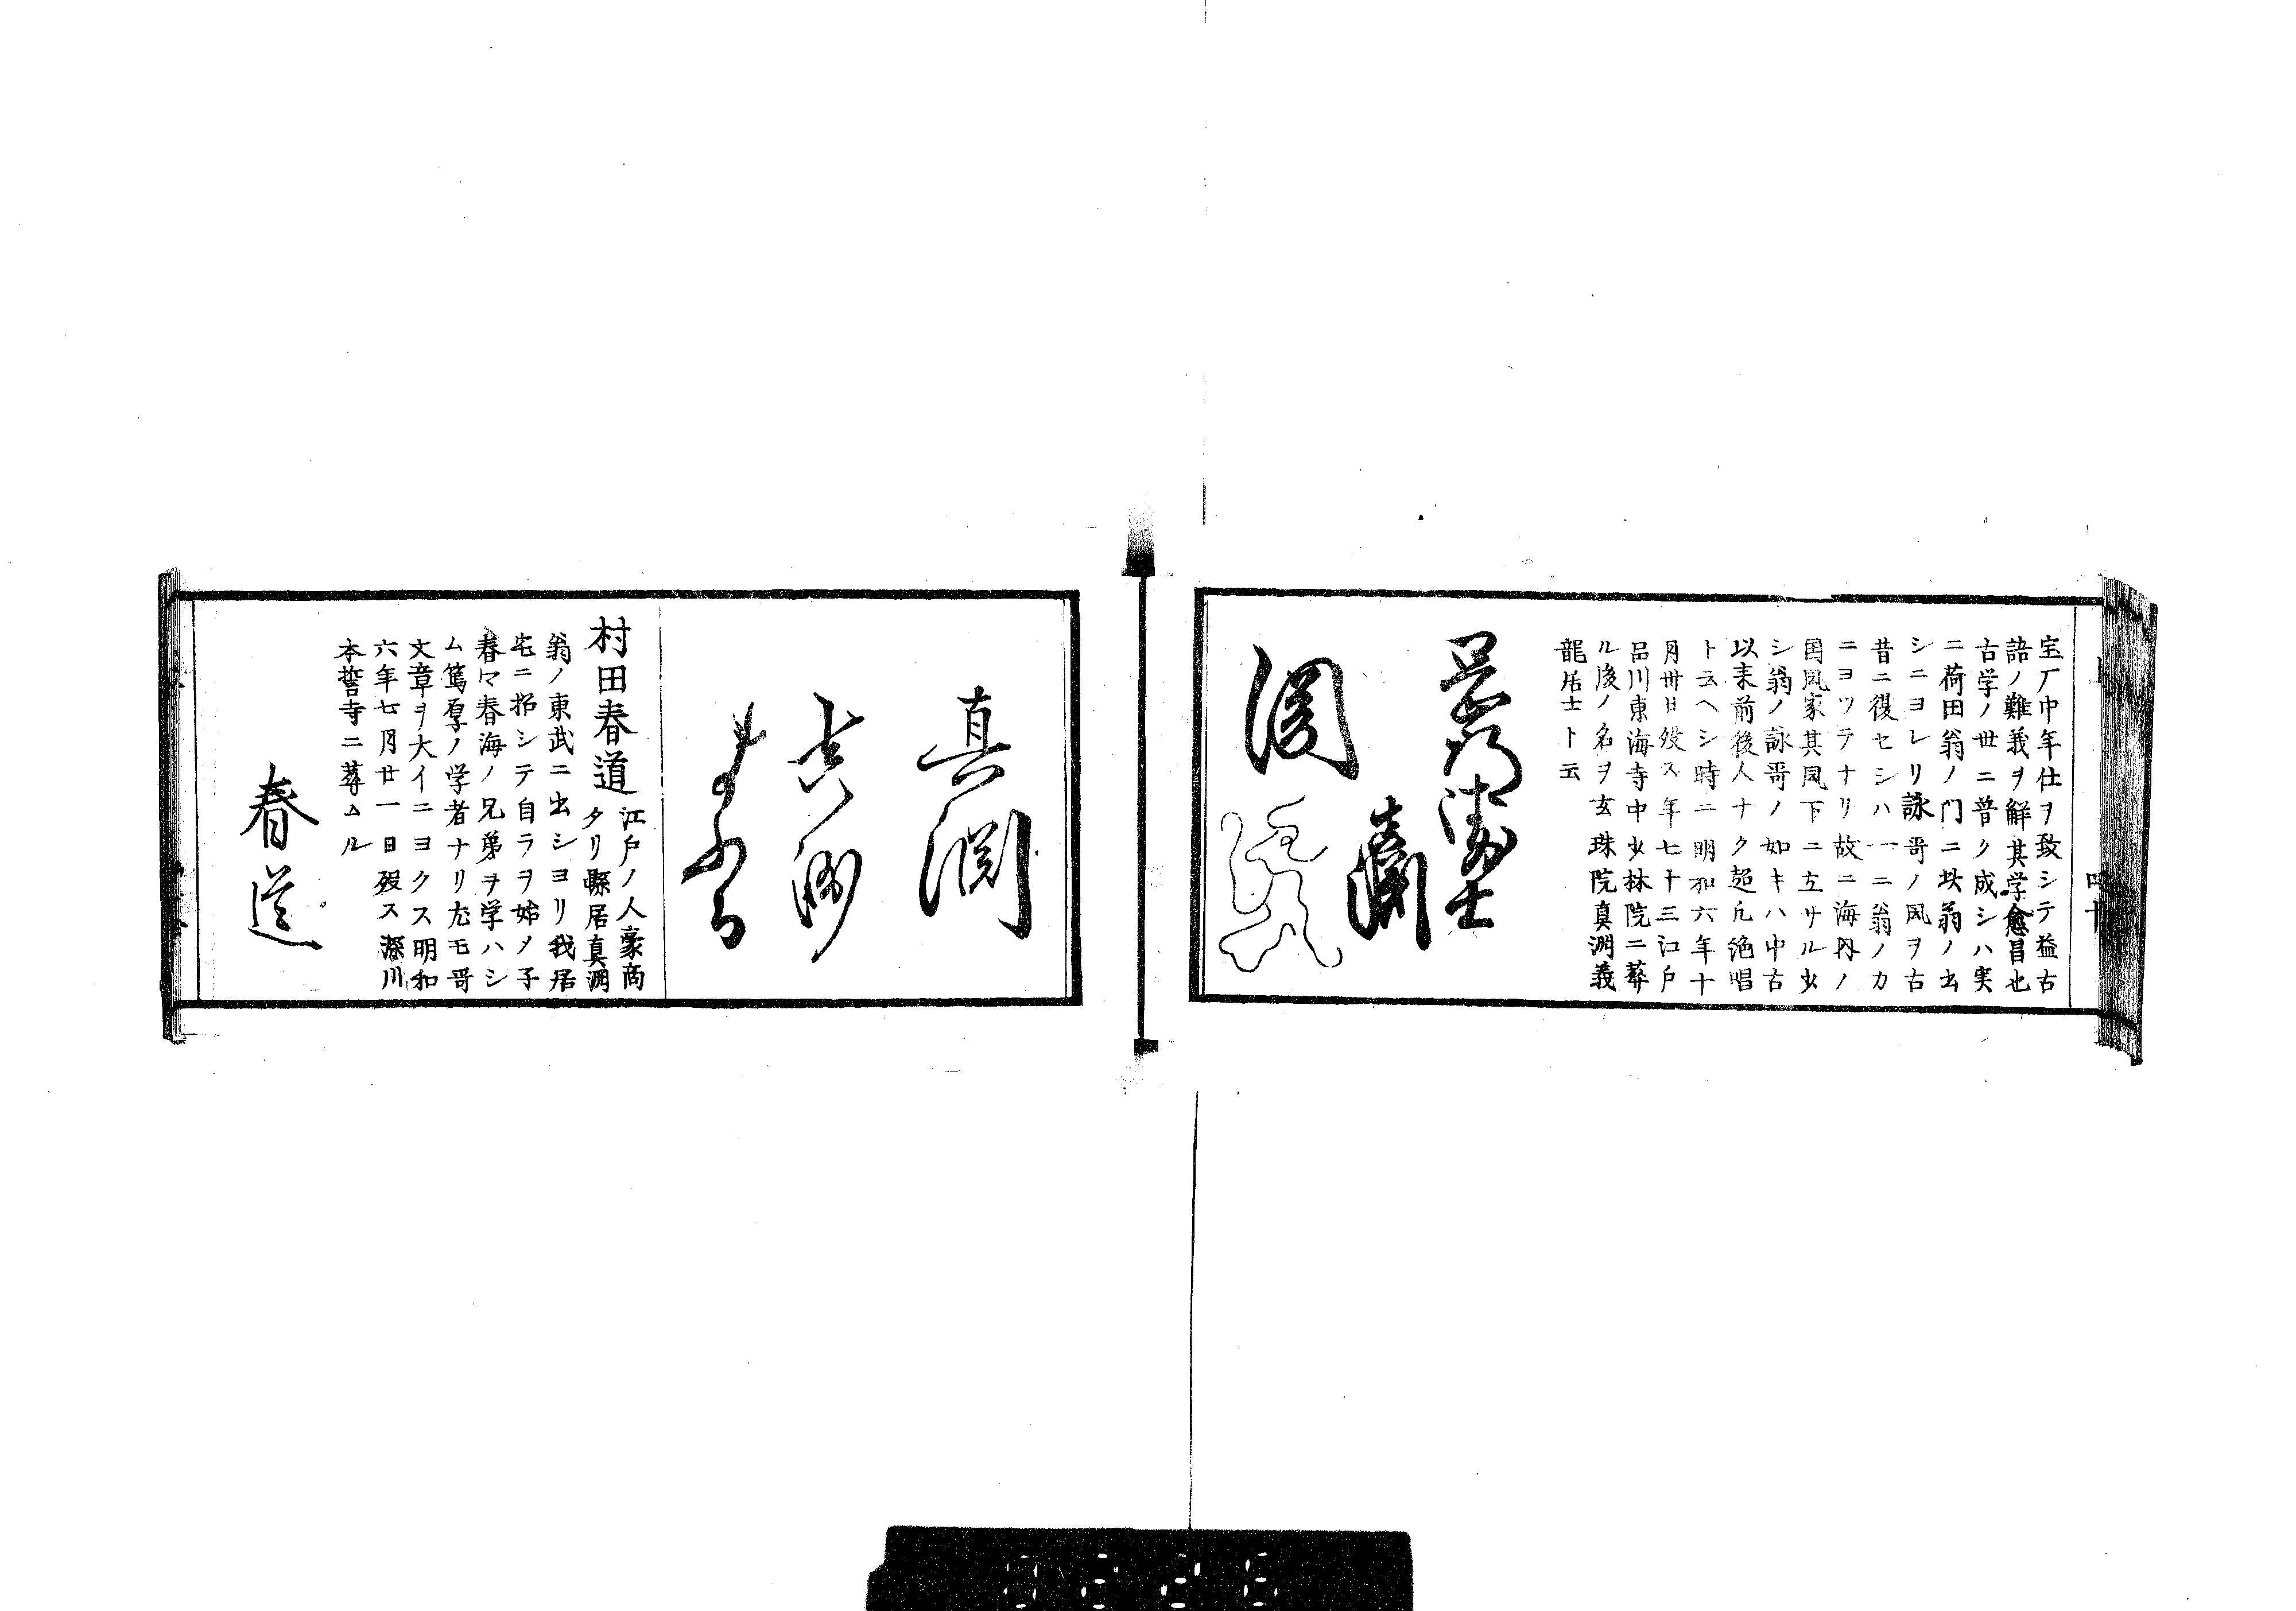 四十
宝厂中年仕ヲ致シテ益古
語ノ難義ヲ解其学愈昌也
古学ノ世ニ普ク成シハ実
ニ荷田翁ノ门ニ此翁ノ出
シニヨレリ詠哥ノ風ヲ古
昔ニ復セシハ一ニ翁ノカ
ニヨツテナリ故ニ海内ノ
国風家其風下ニ立サル少
シ翁ノ詠哥ノ如キハ中古
以来前後人ナク超凡絶唱
ト云ヘシ時ニ明和六年十
月卅日歿ス年七十三江戸
品川東海寺中少林院ニ葬
ル後ノ名ヲ玄珠院真渊義
龍居士ト云
渕
真渕
村田春道
江戸ノ人豪商
タリ縣居真渊
翁ノ東武ニ出シヨリ我居
宅ニ招シテ自ラヲ始メ子
春マ春海ノ兄弟ヲ学ハシ
ム篤厚ノ学者ナリ尤モ哥
文章ヲ大イニヨクス明和
六年七月廿一日歿ス深川
本誓寺ニ葬ムル
春道